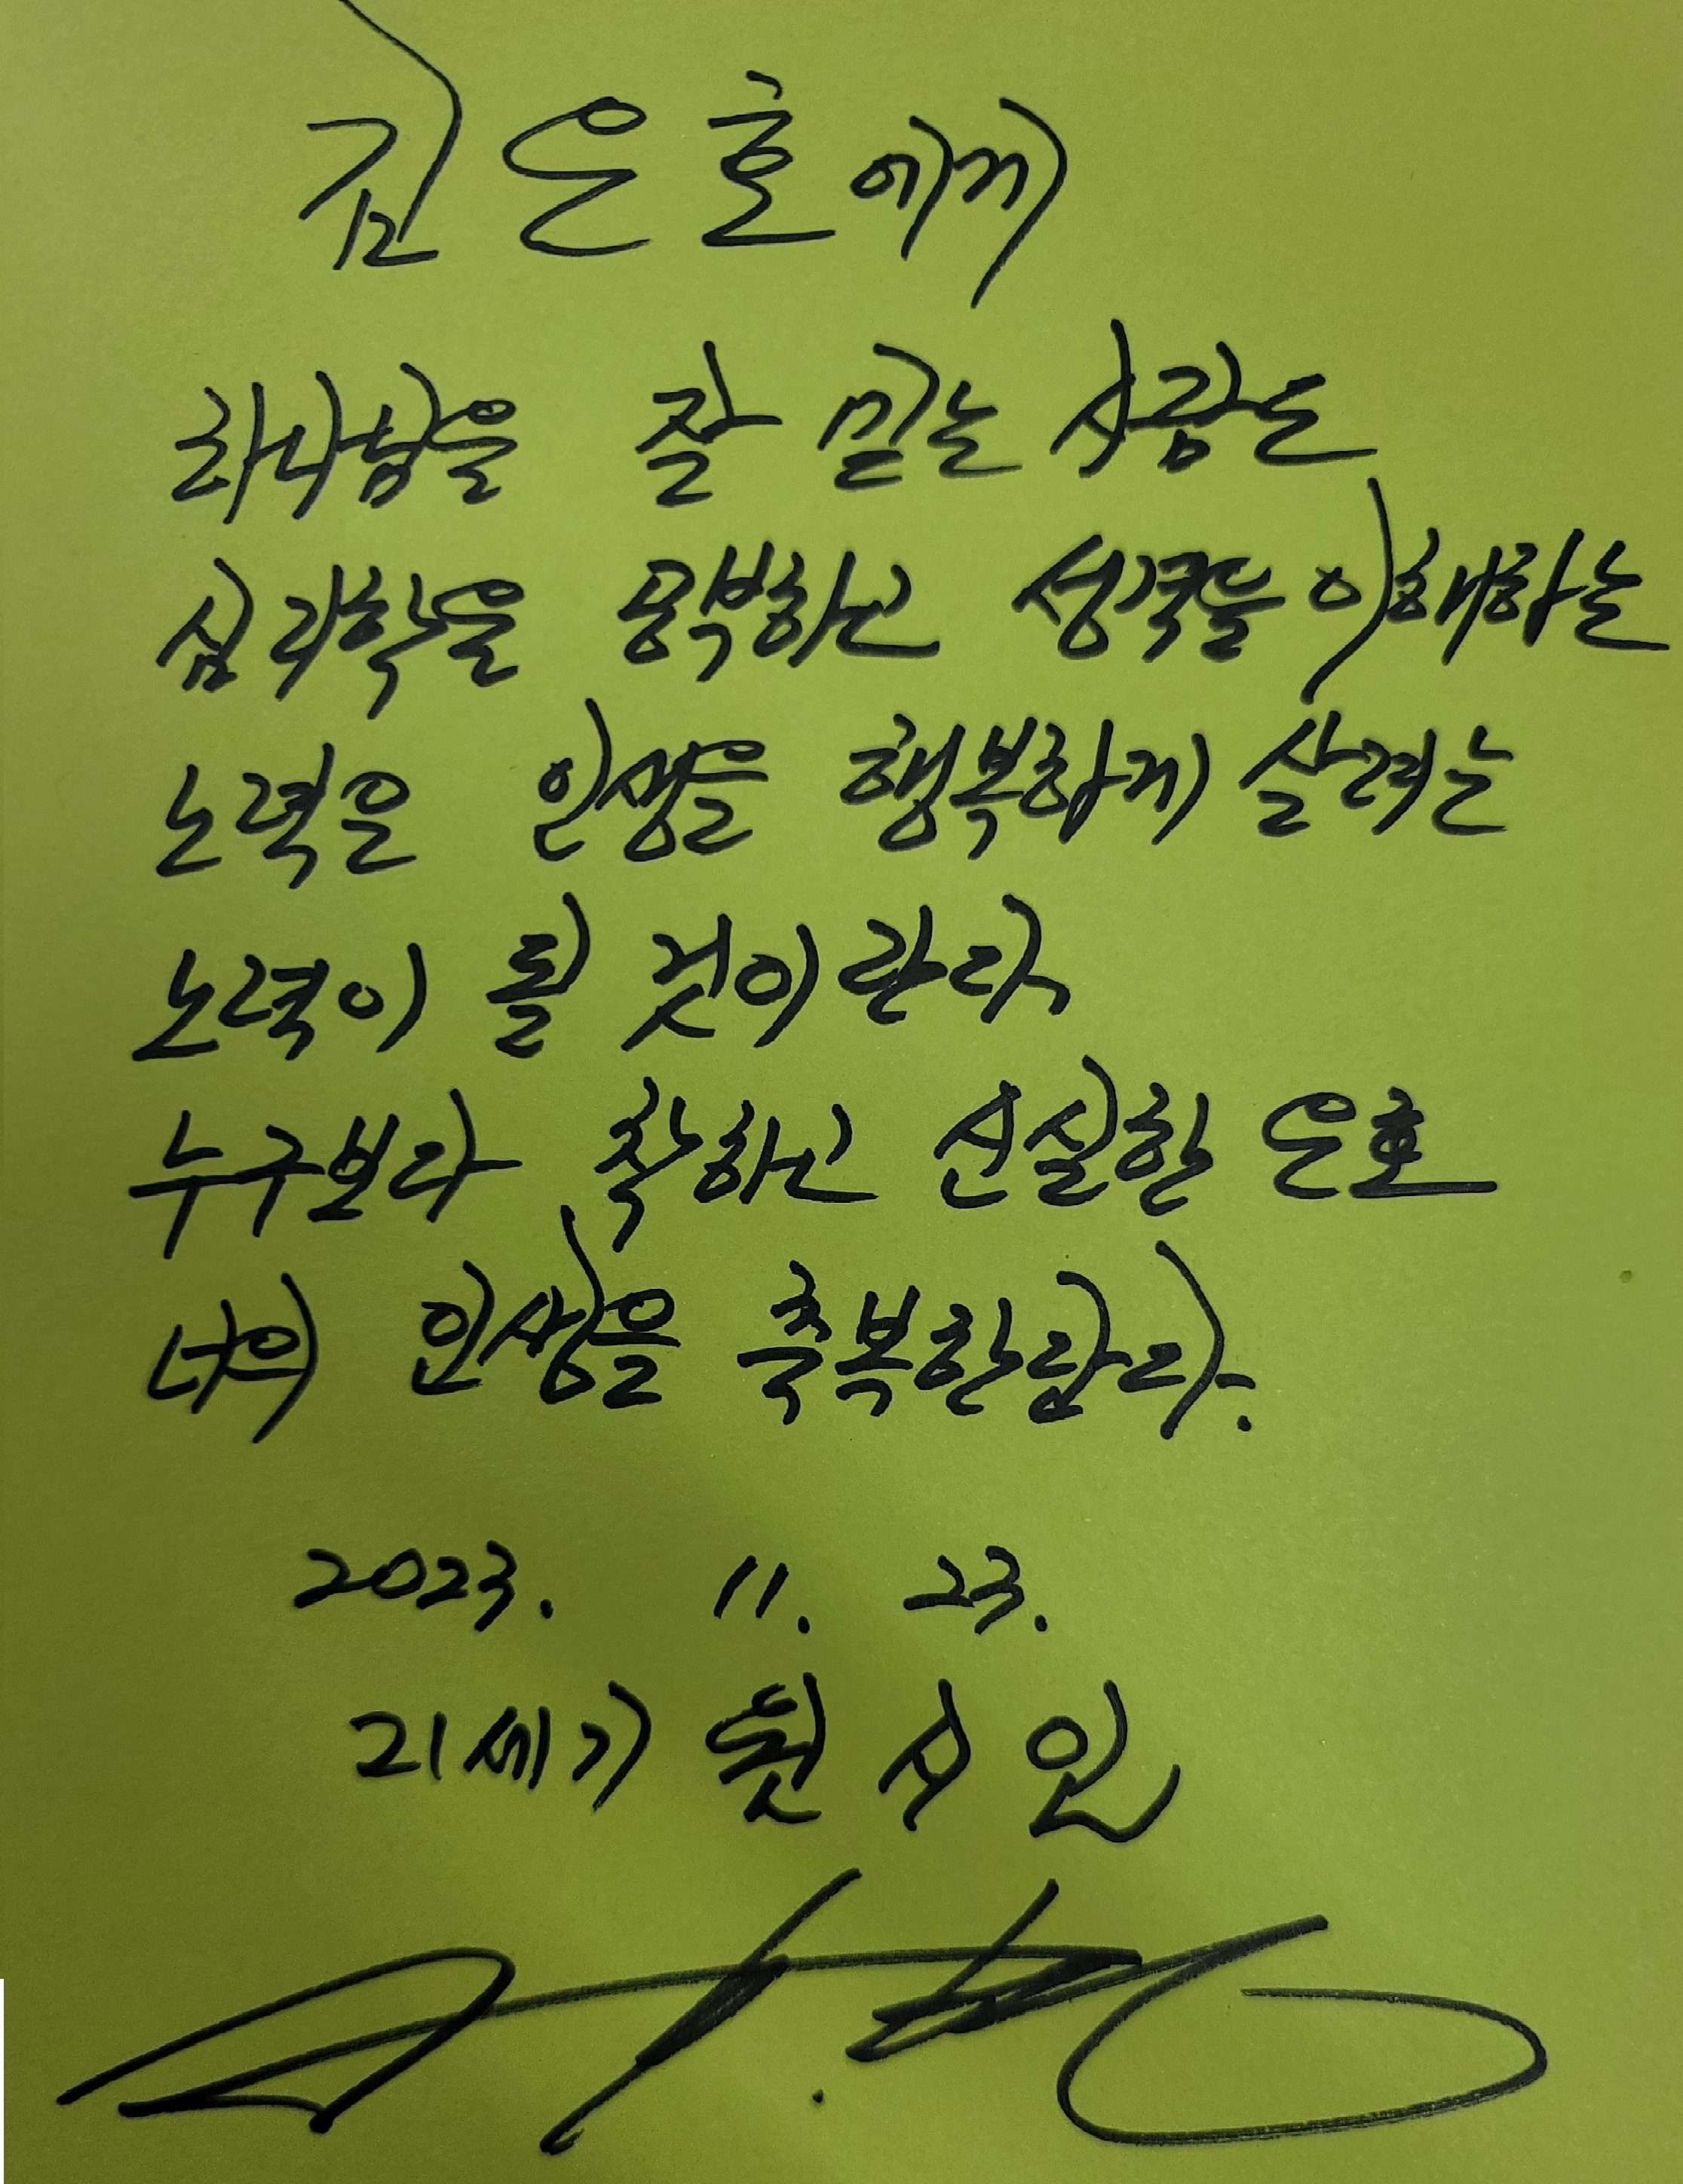 김은호에게
하나님을 잘 믿는 사람도
심리학을 공부하고 성격을 이해하는
노력은 인생을 행복하게 살려는
노력이 될 것이란다
누구보다 착하고 신실한 은호
너의 인생을 축복한단다.
2023. 11. 23.
21세기